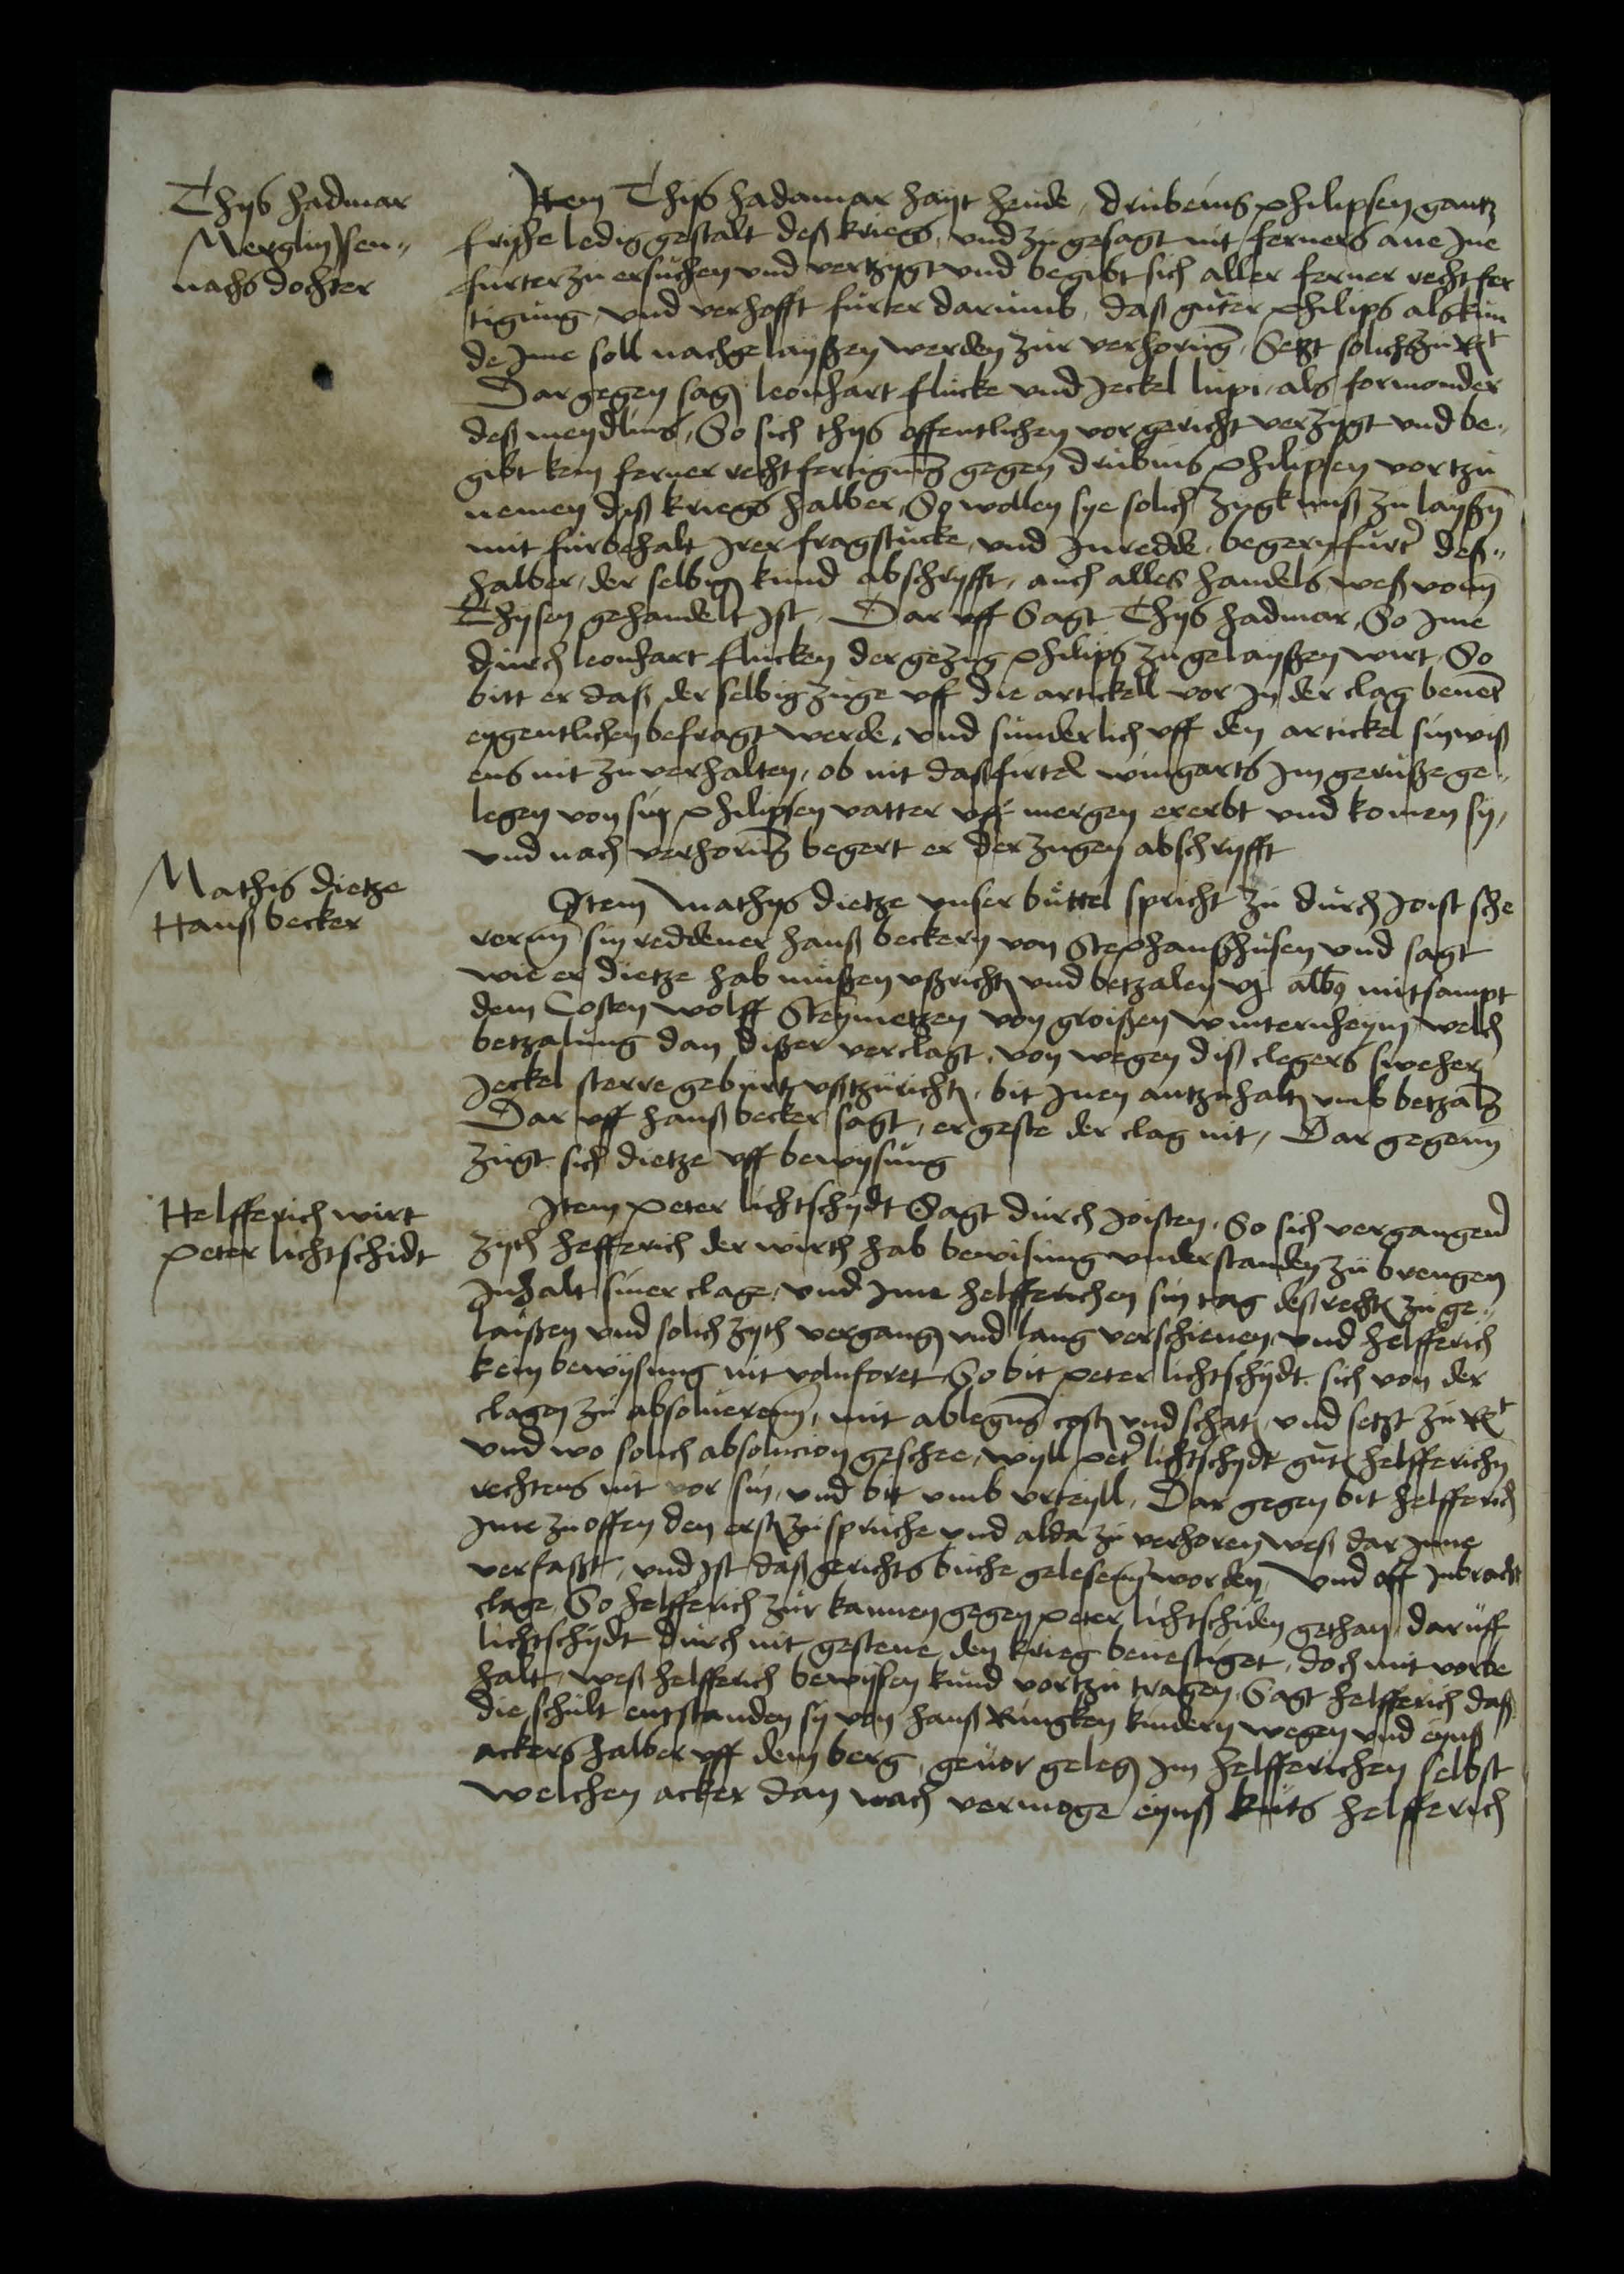 Thys hadmar
Merglin Isen„
nachs dochter
Item Thys hadamar hayt heude, drubeins philipsen gantz
fryhe ledig gestalt deß kriegs, und zu gesagt nit ferners ane Jne
furter zu ersuchen und vertzygt und begibt sich aller ferner recht fer
tigung, und verhofft furter darumb, daß guter philips als kun
de Jme soll nachgelayßen werden zur verhorung, Setzt solichs zu Rt
Dar gegen sagen leonhart flucke und Jeckel lupi, als formonder
deß meydlins, So sich thys offentlichen vor gericht verzygt und be„
gibt kein ferner rechtfertigung gegen drubins philipsen vortzu
nemen diß kriegs halber, So wollen sye solich zugkniß zu layßen
mit furbehalt Irer fragstucke, und Inredde, begern furter deß„
halber, der selbigen kund abschryfft, auch alles handels, weß vonn
Thysen gehandelt Ist, Dar uff Sagt Thys hadmar, So Jme
durch leonhart flucken der gezug philips zugelayßen wirt, So
bitt er daß der selbig zuge uff die artickell vor Jn der clag benent
eygentlichen befragt werde, und sunderlich uff den artickel sin wiß
ens nit zu verhalten, ob nit daß firtel wingarts Jm geruße ge„
legen von sin philipsen vatter uff mergen ererbt und komen sy,
und nach verhorung begert er der zugen abschryfft
Mathis dietze
Hanß becker
Item mathys dietze unser buttel spricht zu durch Joist sche
rernn sin reddener hanß beckern von Stephanßhusen und sagt
wie er dietze hab mußen ußrichten und betzalen vj albus mitsampt
dem Costen wolff Steynmetzen von groißen winternheym, welch
betzalung dan dißer verclagt, von wegen diß clegers sweher
Jeckel sterre geburt ußtzurichten, bit Jnen antzuhalten umb betzalung
Dar uff hanß becker sagt, er geste der clag nit, Dar gegenn
zugt sich dietze uff bewysung
Helfferich wirt
Peter lichtschidt
Item Peter lichtschydt Sagt durch Joisten, So sich vergangener
zyth hefferich der wirth hab bewisung understanden zu brengen
Jnhalt siner clage, und Jme helfferichen sin tag deß rechten zu ge„
laißen und solich zyth vergangen und lang verschienen, und helfferich
kein bewysung nit volnforet So bit Peter lichtschydt sich von der
clagen zu absoluerenn, mit ablegung costen und schaten, und setzt zu Rt
und wo solich absolucion geschee, wyll peter lichtschydt guten helfferichen
rechtens nit vor sin, und bit umb urteyll, Dar gegen bit helfferich
Jme zu offen den ersten zu spruche und alda zu verhoren weß dar Jnne
verfasst, und Ist daß gerichts buche gelesenn worden, und uff Jnbracht
clage, So helfferich zur kannen gegen peter lichtschiden gethan, daruff
lichtschydt durch nit gestene den krieg beuestiget, doch mit vorbe
halt, weß helfferich bewysen kund vortzu tragen, Sagt helfferich daß
die schult entstanden sy von hanß Rungken kindern wegen und eynß
ackers halber uff dem berg, geuor gelegen Jm helfferichen selbst
welchen acker dan nach vermoge eynß kuts helfferich